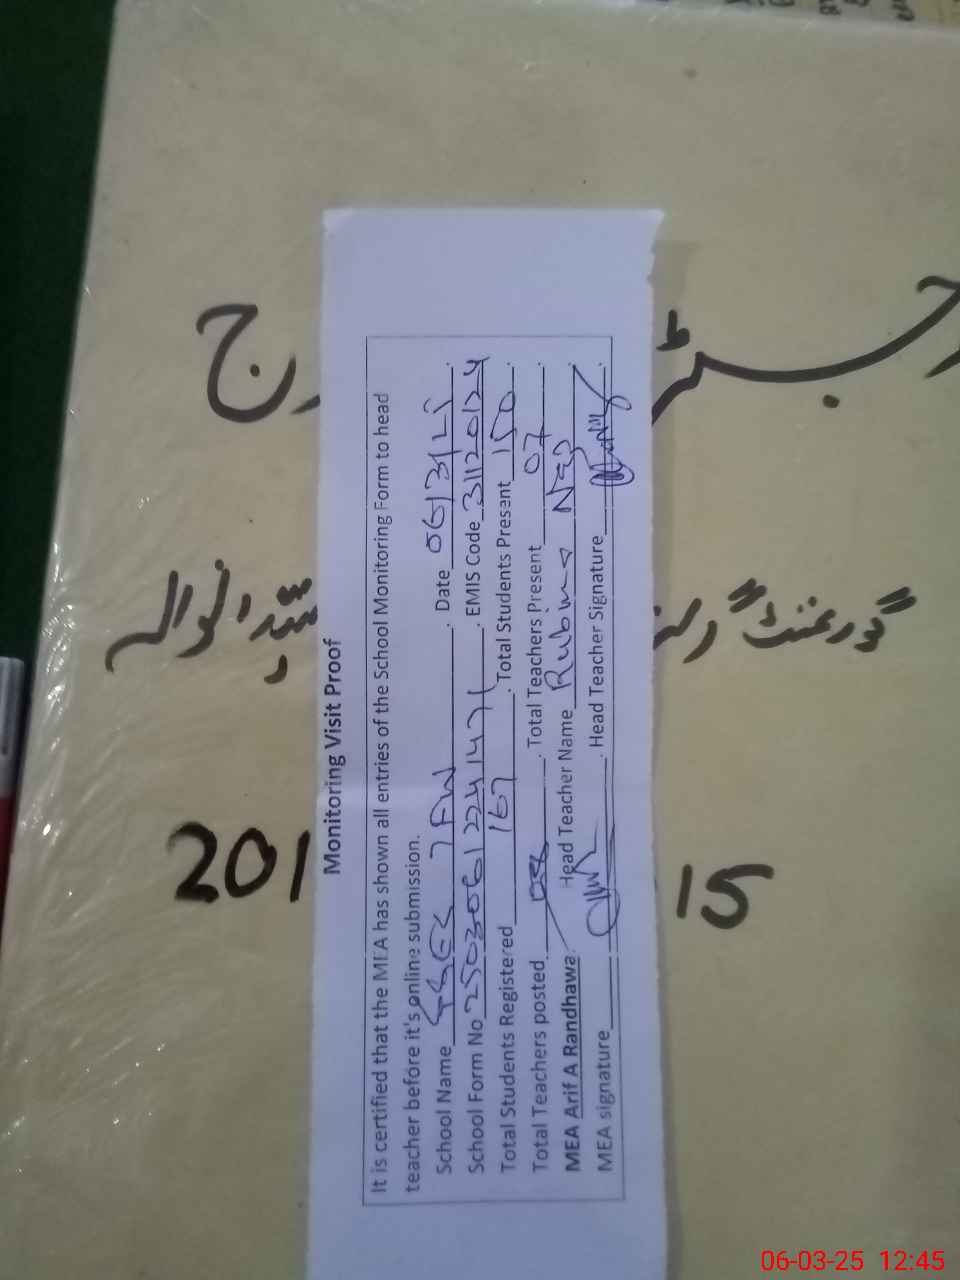 Monitoring Visit Proof
It is certified that the MEA has shown all entries of the School Monitoring Form to head
teacher before it's online submission.
School Name GGES 7 FW . Date 06/3/25.
School Form No 250306122414 71 . EMIS Code 31120124
Total Students Registered 167 . Total Students Presant 150.
Total Teachers posted 08 . Total Teachers Present 07.
MEA Arif A Randhawa. Head Teacher Name Rubina Naz
MEA signature . Head Teacher Signature .
رجسٹر
گورنمنٹ گرلز
201 15
06-03-25 12:45